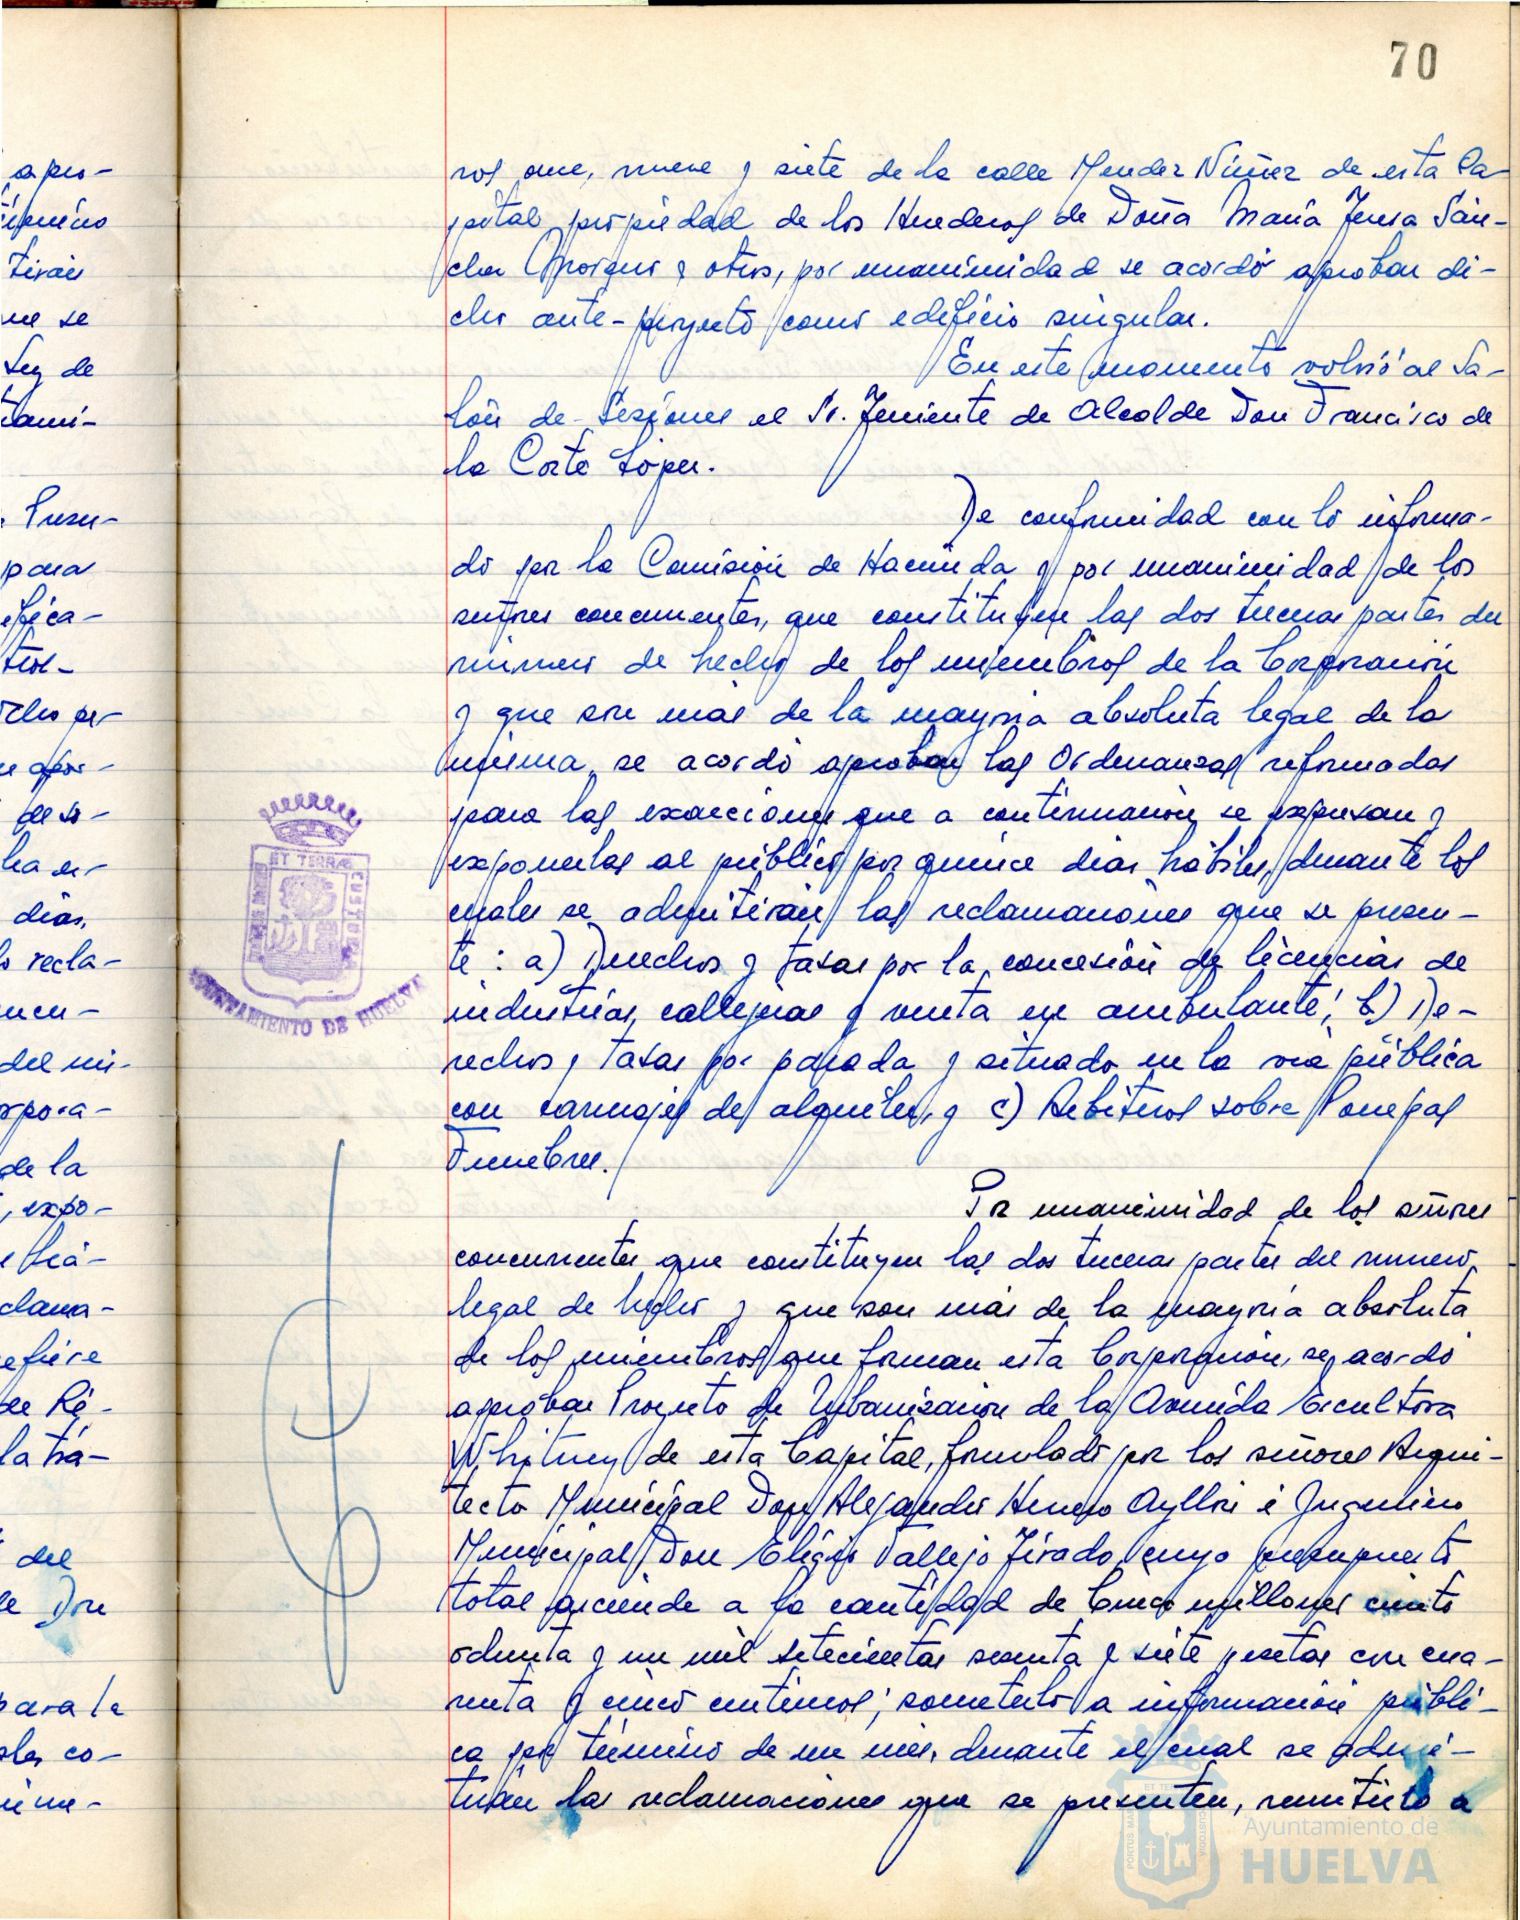 70
ros once, nueve y siete de la calle Mendez Núñez de esta Ca-
pital propiedad de los Herederos de Doña María Teresa Sán-
chez y otros, por unanimidad se acordó aprobar di-
cho ante-proyecto como edificio singular.
En este momento volvió al Sa-
lón de Sesiones el Sr. Teniente de Alcalde Don Francisco de
la Corte López.
De conformidad con lo informa-
do por la Comisión de Hacienda y por unanimidad de los
señores concurrentes, que constituyen las dos terceras partes del
número de hecho de los miembros de la Corporación
y que son más de la mayoría absoluta legal de la
misma, se acordó aprobar las Ordenanzas reformadas
para las exacciones que a continuación se expresan y
exponerlas al público por quince días hábiles, durante los
cuales se admitirán las reclamaciones que se presen-
te: a) Derechos y tasas por la concesión de licencias de
industrias callejeras y venta en ambulante; b) De-
rechos y tasas por parada y situado en la vía pública
con carruajes de alquiler, y c) Arbitrios sobre Pompas
Funebres.
Por unanimidad de los señores
concurrentes que constituyen las dos terceras partes del numero
legal de hecho y que son más de la mayoría absoluta
de los miembros que forman esta Corporación, se acordó
aprobar Proyecto de Urbanización de la Avenida Escultora
Whitney de esta Capital, formulado por los señores Arqui-
tecto Municipal Don Alejandro Herrero Ayllón e Ingeniero
Municipal Don Eligio Vallejo Tirado, cuyo presupuesto
total asciende a la cantidad de Cinco millones ciento
ochenta y un mil setecientas sesenta y siete pesetas con cua-
renta y cinco centimos; someterlo a información públi-
ca por término de un mes, durante el cual se admi-
tirán las reclamaciones que se presenten, remitirlo a
apro-
término
tirán
ue se
Ley de
tami-
Presu-
para
de so-
ha er-
días,
lo recla-
del nú-
orpora-
de la
, expo-
clama-
efiere
de Ré-
la trá-
del
le Don
para la
ET TERRAE CUSTODIA
AYUNTAMIENTO DE HUELVA
PORTUS MARIS
ET TERRAE
CUSTODIA
Ayuntamiento de
HUELVA